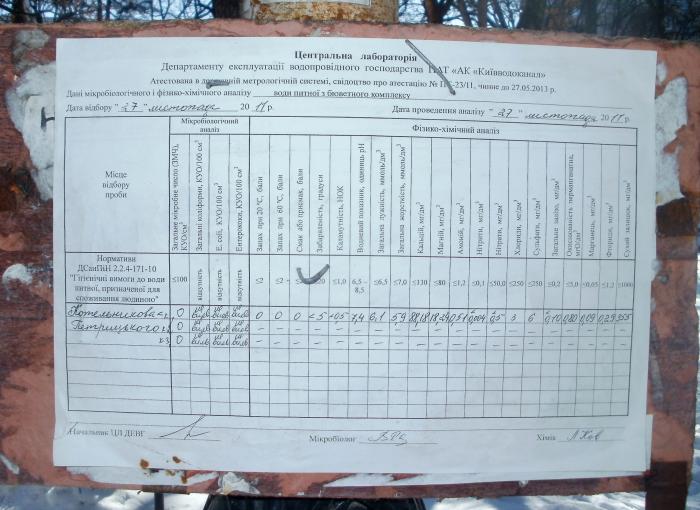 Центральна лабораторія
Департаменту експлуатації водопровідного господарства ПАТ «АК «Київводоканал»
Атестована в державній метрологічній системі, свідоцтво про атестацію № ПТ-23/11, чинне до 27.05.2013 р.
Дані мікробіологічного і фізико-хімічного аналізу води питної з бюветного комплексу
Дата відбору "27" листопада 2011 р. Дата проведення аналізу "27" листопада 2011 р.
Місце відбору проби
Мікробіологічний аналіз
Фізико-хімічний аналіз
Загальне мікробне число (ЗМЧ), КУО/см³
Загальні коліформи, КУО/100 см³
E. coli, КУО/100 см³
Ентерококи, КУО/100 см³
Запах при 20 °С, бали
Запах при 60 °С, бали
Смак або присмак, бали
Забарвленість, градуси
Каламутність, НОК
Водневий показник, одиниць pH
Загальна лужність, ммоль/дм³
Загальна жорсткість, ммоль/дм³
Кальцій, мг/дм³
Магній, мг/дм³
Амоній, мг/дм³
Нітрити, мг/дм³
Нітрати, мг/дм³
Хлориди, мг/дм³
Сульфати, мг/дм³
Загальне залізо, мг/дм³
Окиснюваність перманганатна, мгО/дм³
Марганець, мг/дм³
Фториди, мг/дм³
Сухий залишок, мг/дм³
Нормативи
ДСанПіН 2.2.4-171-10
"Гігієнічні вимоги до води
питної, призначеної для
споживання людиною"
≤100 відсутність відсутність відсутність ≤2 ≤2 ≤1,0 6,5 - 8,5 ≤6,5 ≤7,0 ≤130 ≤80 ≤1,2 ≤0,1 ≤50,0 ≤250 ≤250 ≤0,2 ≤5,0 ≤0,05 ≤1,2 ≤1000
Котельникова 0 не вияв не вияв не вияв 0 0 0 <5 7,4 6,1 5,9 3 6
Петрицького 0 не вияв не вияв не вияв – – – – – – – – – – – – – – – – – – – –
к3 0 не вияв не вияв не вияв – – – – – – – – – – – – – – – – – – – –
Начальник ЦЛ ДЕВГ Мікробіолог Хімік